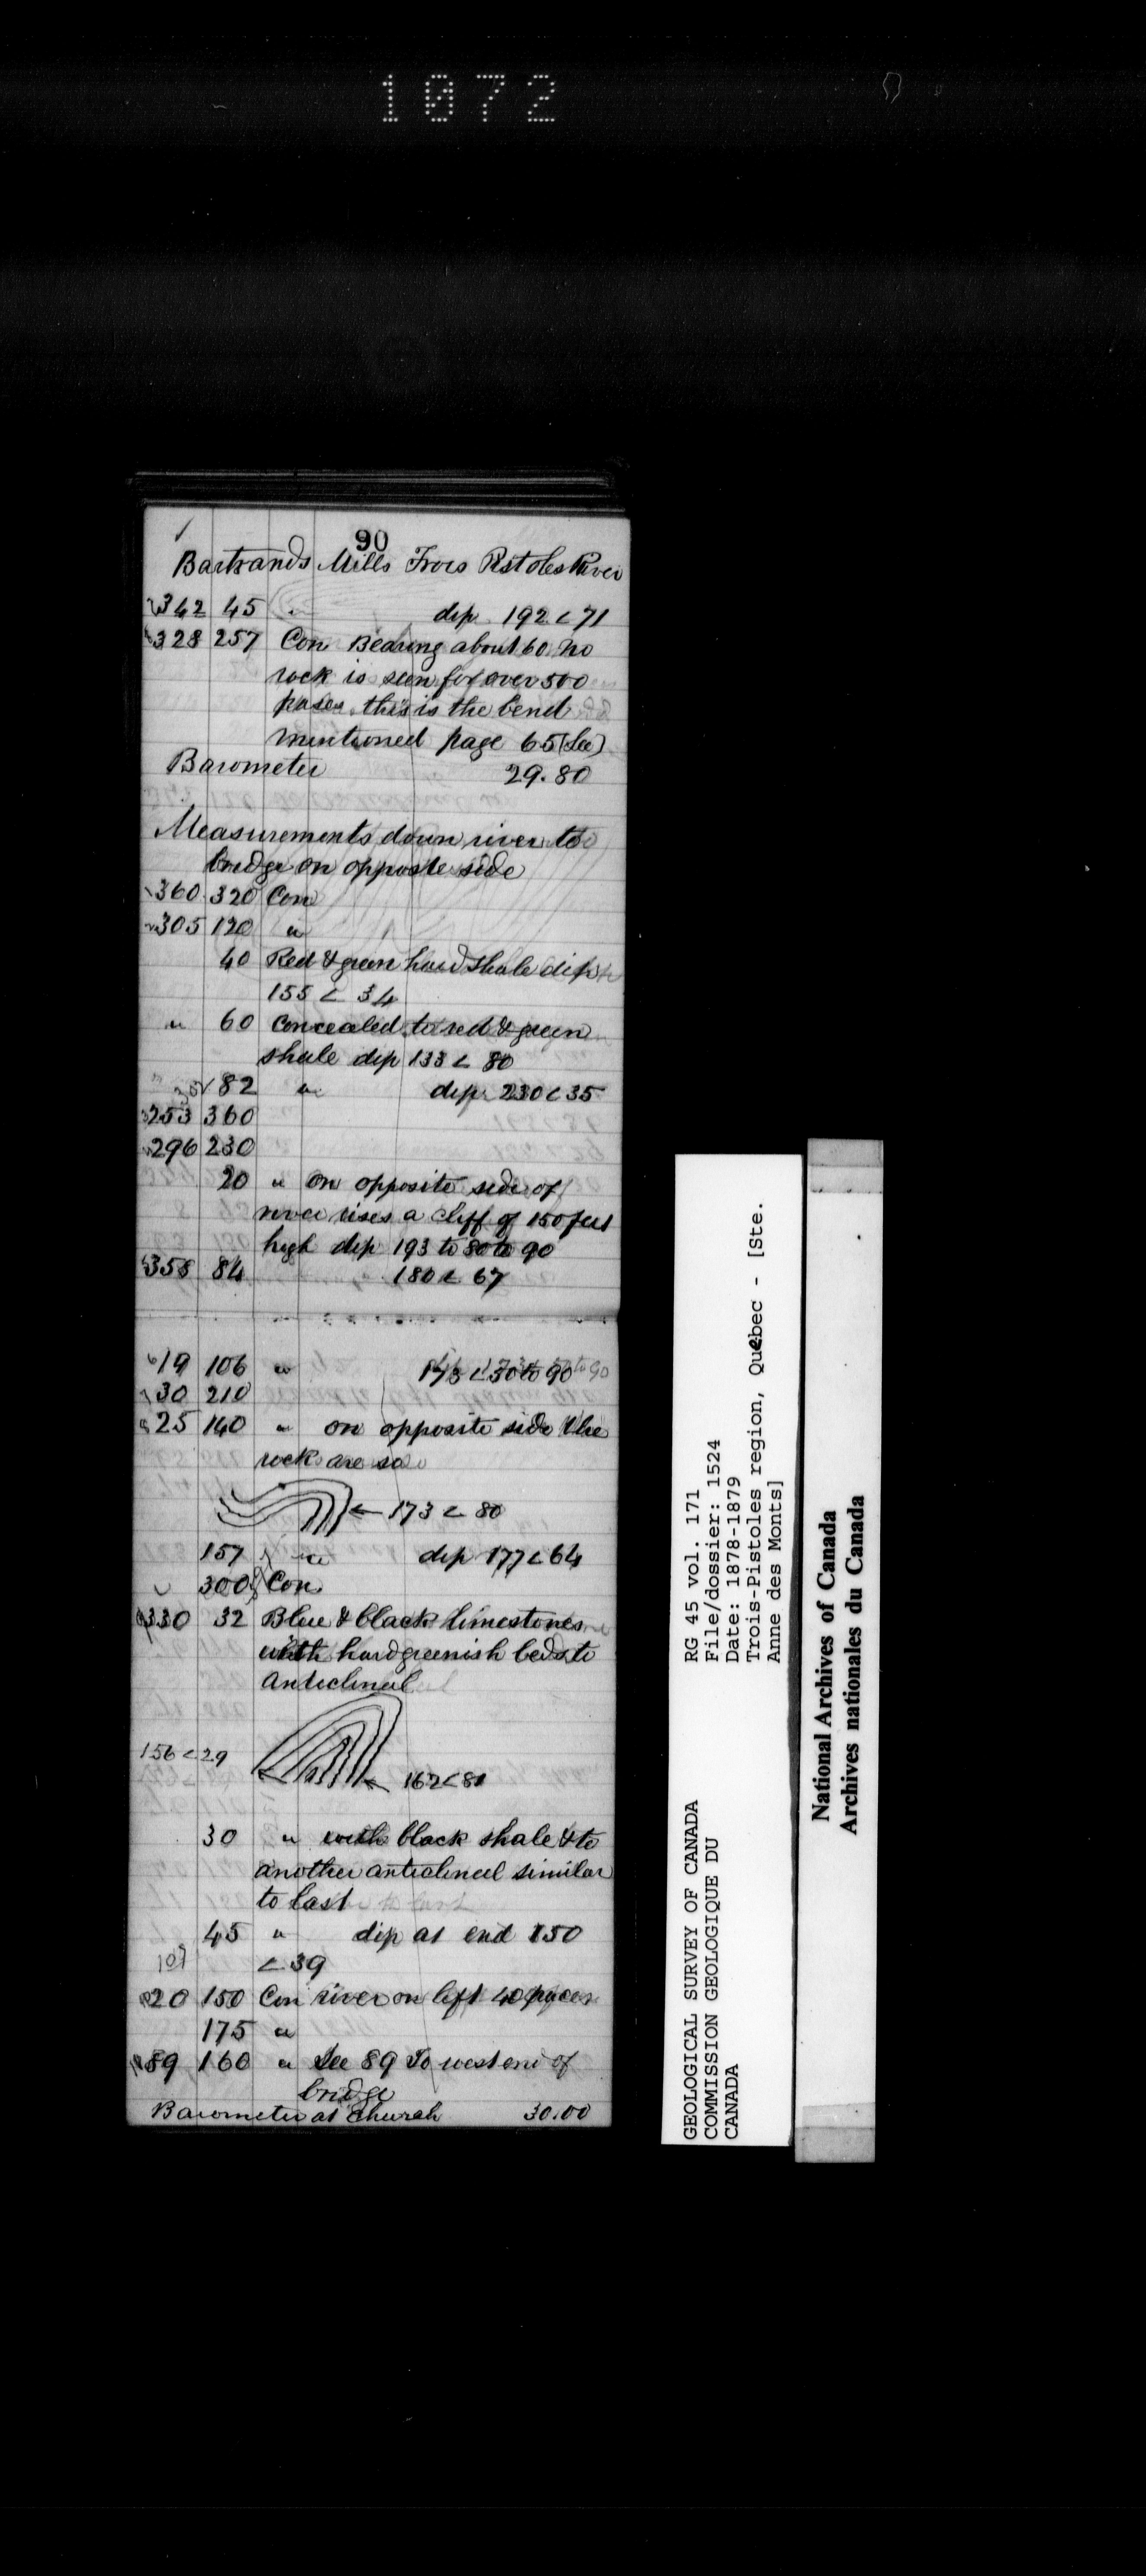 1072
90
Bartrands Mills Trois Pistoles River
342 45 " dip 192 < 71
328 257 Con Bearing about 60 no
rock is seen for over 500
paces. this is the bend
mentioned page 65 (See)
Barometer 29.80
Measurements down river to
bridge on opposite side
360 320 Con
305 120 "
40 Red & green hard shale dip
155 < 34
" 60 Concealed to red & green
shale dip 133 < 80
82 " dip 230 < 35
253 360
296 230
20 " on opposite side of
river rises a cliff of 150 feet
high dip 193 to 80 to 90
358 84 180 < 67
19 106 " 173 < 50 to 90
30 210
25 140 " on opposite side the
rock are so
← 173 < 80
157 " dip 177 < 64
300 Con
330 32 Blue & black limestones
with hard greenish beds to
anticlineal
156 < 29
← 162 < 81
30 " with black shale & to
another anticlineal similar
to last
45 " dip at end 150
< 39
20 150 Con river on left 40 paces
175 "
89 160 " See 89 To west end of
bridge
Barometer at Church 30.00
GEOLOGICAL SURVEY OF CANADA
COMMISSION GEOLOGIQUE DU
CANADA
RG 45 vol. 171
File/dossier: 1524
Date: 1878-1879
Trois-Pistoles region, Quebec - [Ste.
Anne des Monts]
National Archives of Canada
Archives nationales du Canada